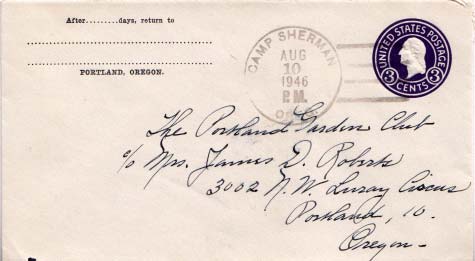 After.........days, return to
PORTLAND, OREGON.
CAMP SHERMAN
AUG
10
1946
P.M.
UNITED STATES POSTAGE
3 CENTS 3
The Portland Garden Club
c/o Mrs. James D. Roberts
3002 N.W. Luray Circus
Portland, 10.
Oregon -